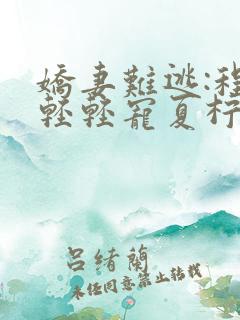 嬌妻難逃:程
輕輕寵夏柠
呂緒蘭
未经同意禁止转载